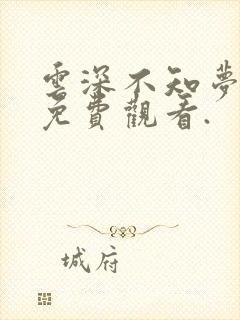 雲深不知夢
免費觀看.
城府